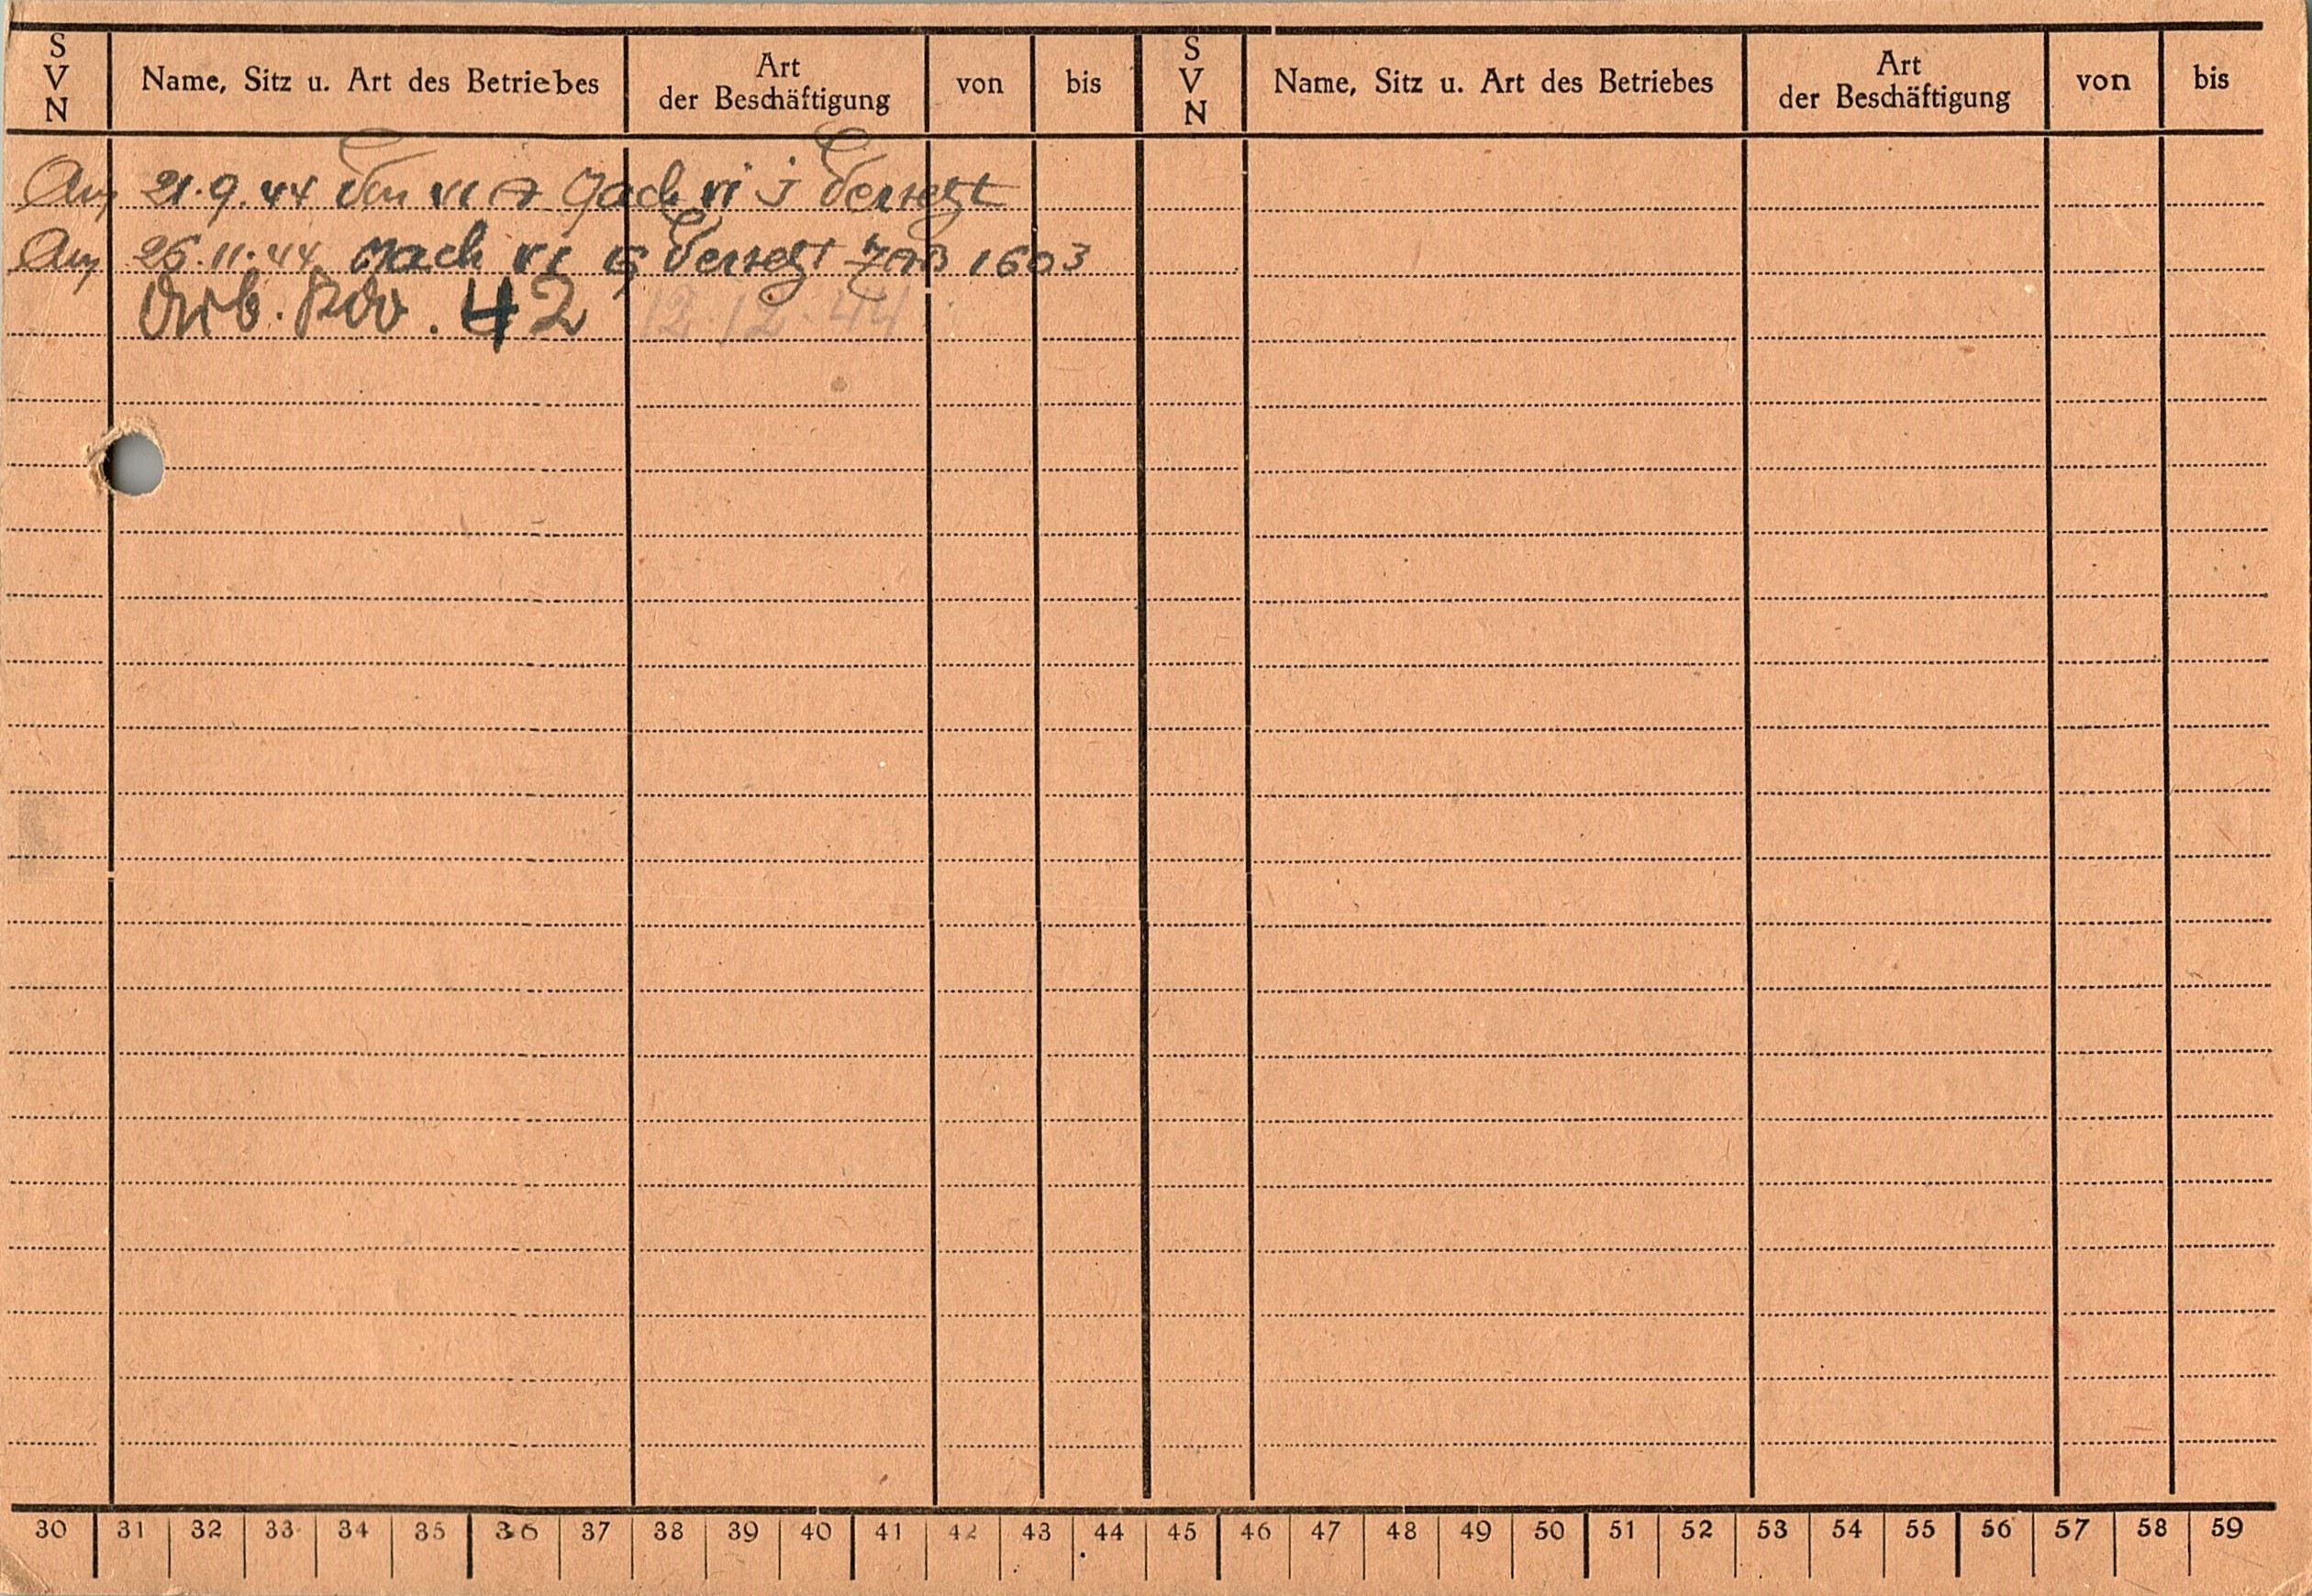 S V N Name, Sitz u. Art des Betriebes Art der Beschäftigung von bis S V N Name, Sitz u. Art des Betriebes Art der Beschäftigung von bis
Am 21.9.44 Von VI A Nach VI J Versetzt
Am 26.11.44 Nach VI G Versetzt 1603
Arb. Kdo. 42 12.12.44
30 31 32 33 34 35 36 37 38 39 40 41 42 43 44 45 46 47 48 49 50 51 52 53 54 55 56 57 58 59